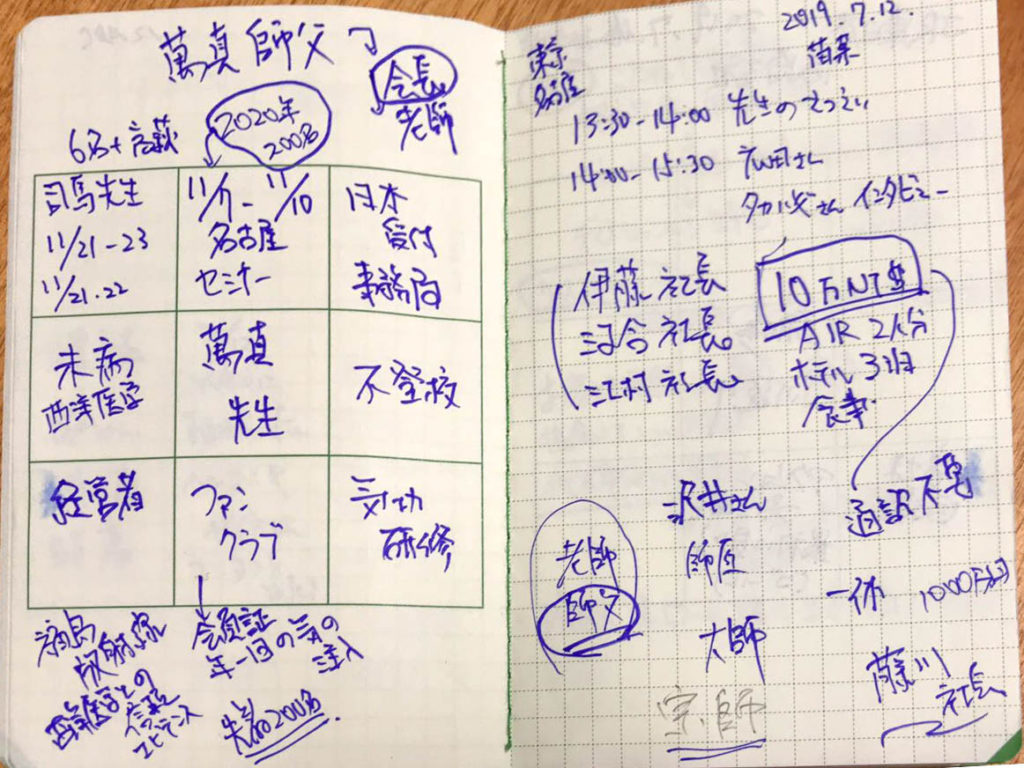 萬真師父
会長
老師
2020年
200名
司馬先生
11/21-23
11/21.22
11/7-11/10
名古屋
セミナー
日本
受付
事務局
未病
西洋医学
萬真
先生
不登校
経営者
ファン
クラブ
気功
研修
会員証
年一回の気の
注入
先着200名
2019.7.12.
東京
名古屋
13:30-14:00 先生の
14:00-15:30
インタビュー
伊藤社長
河合社長
江村社長
10万NT$
AIR 2人分
ホテル3泊
食事
通訳不要
沢井さん
老師
師父
大師
宗師
一休 1000万円
藤川
社長